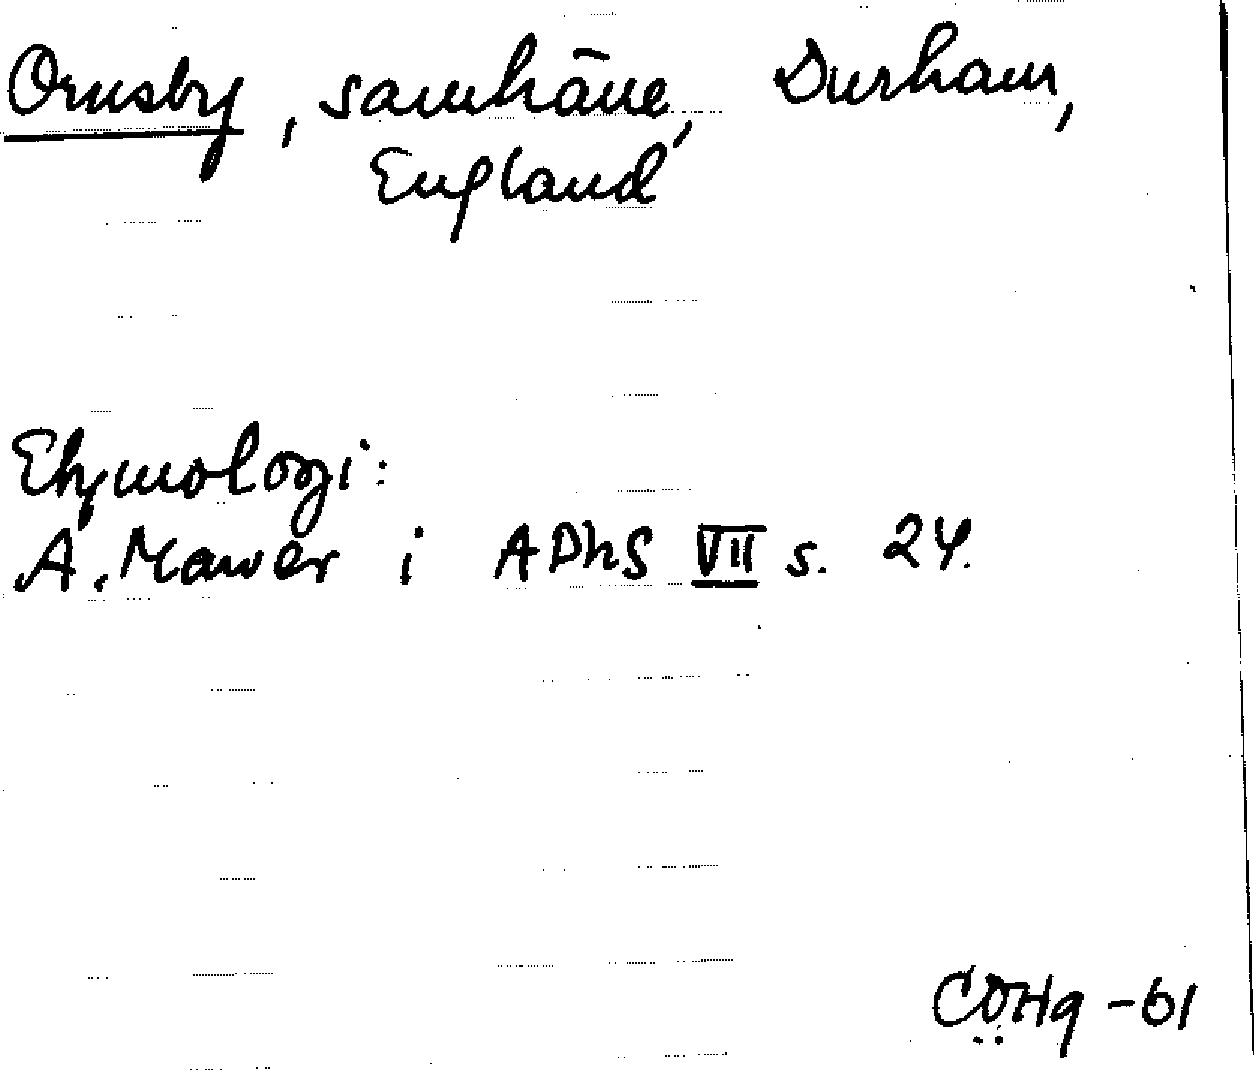 Ornsby, samhäne, Durham,
England
Etymologi:
A. Mawer i APhS VII s. 24.
COHg -61